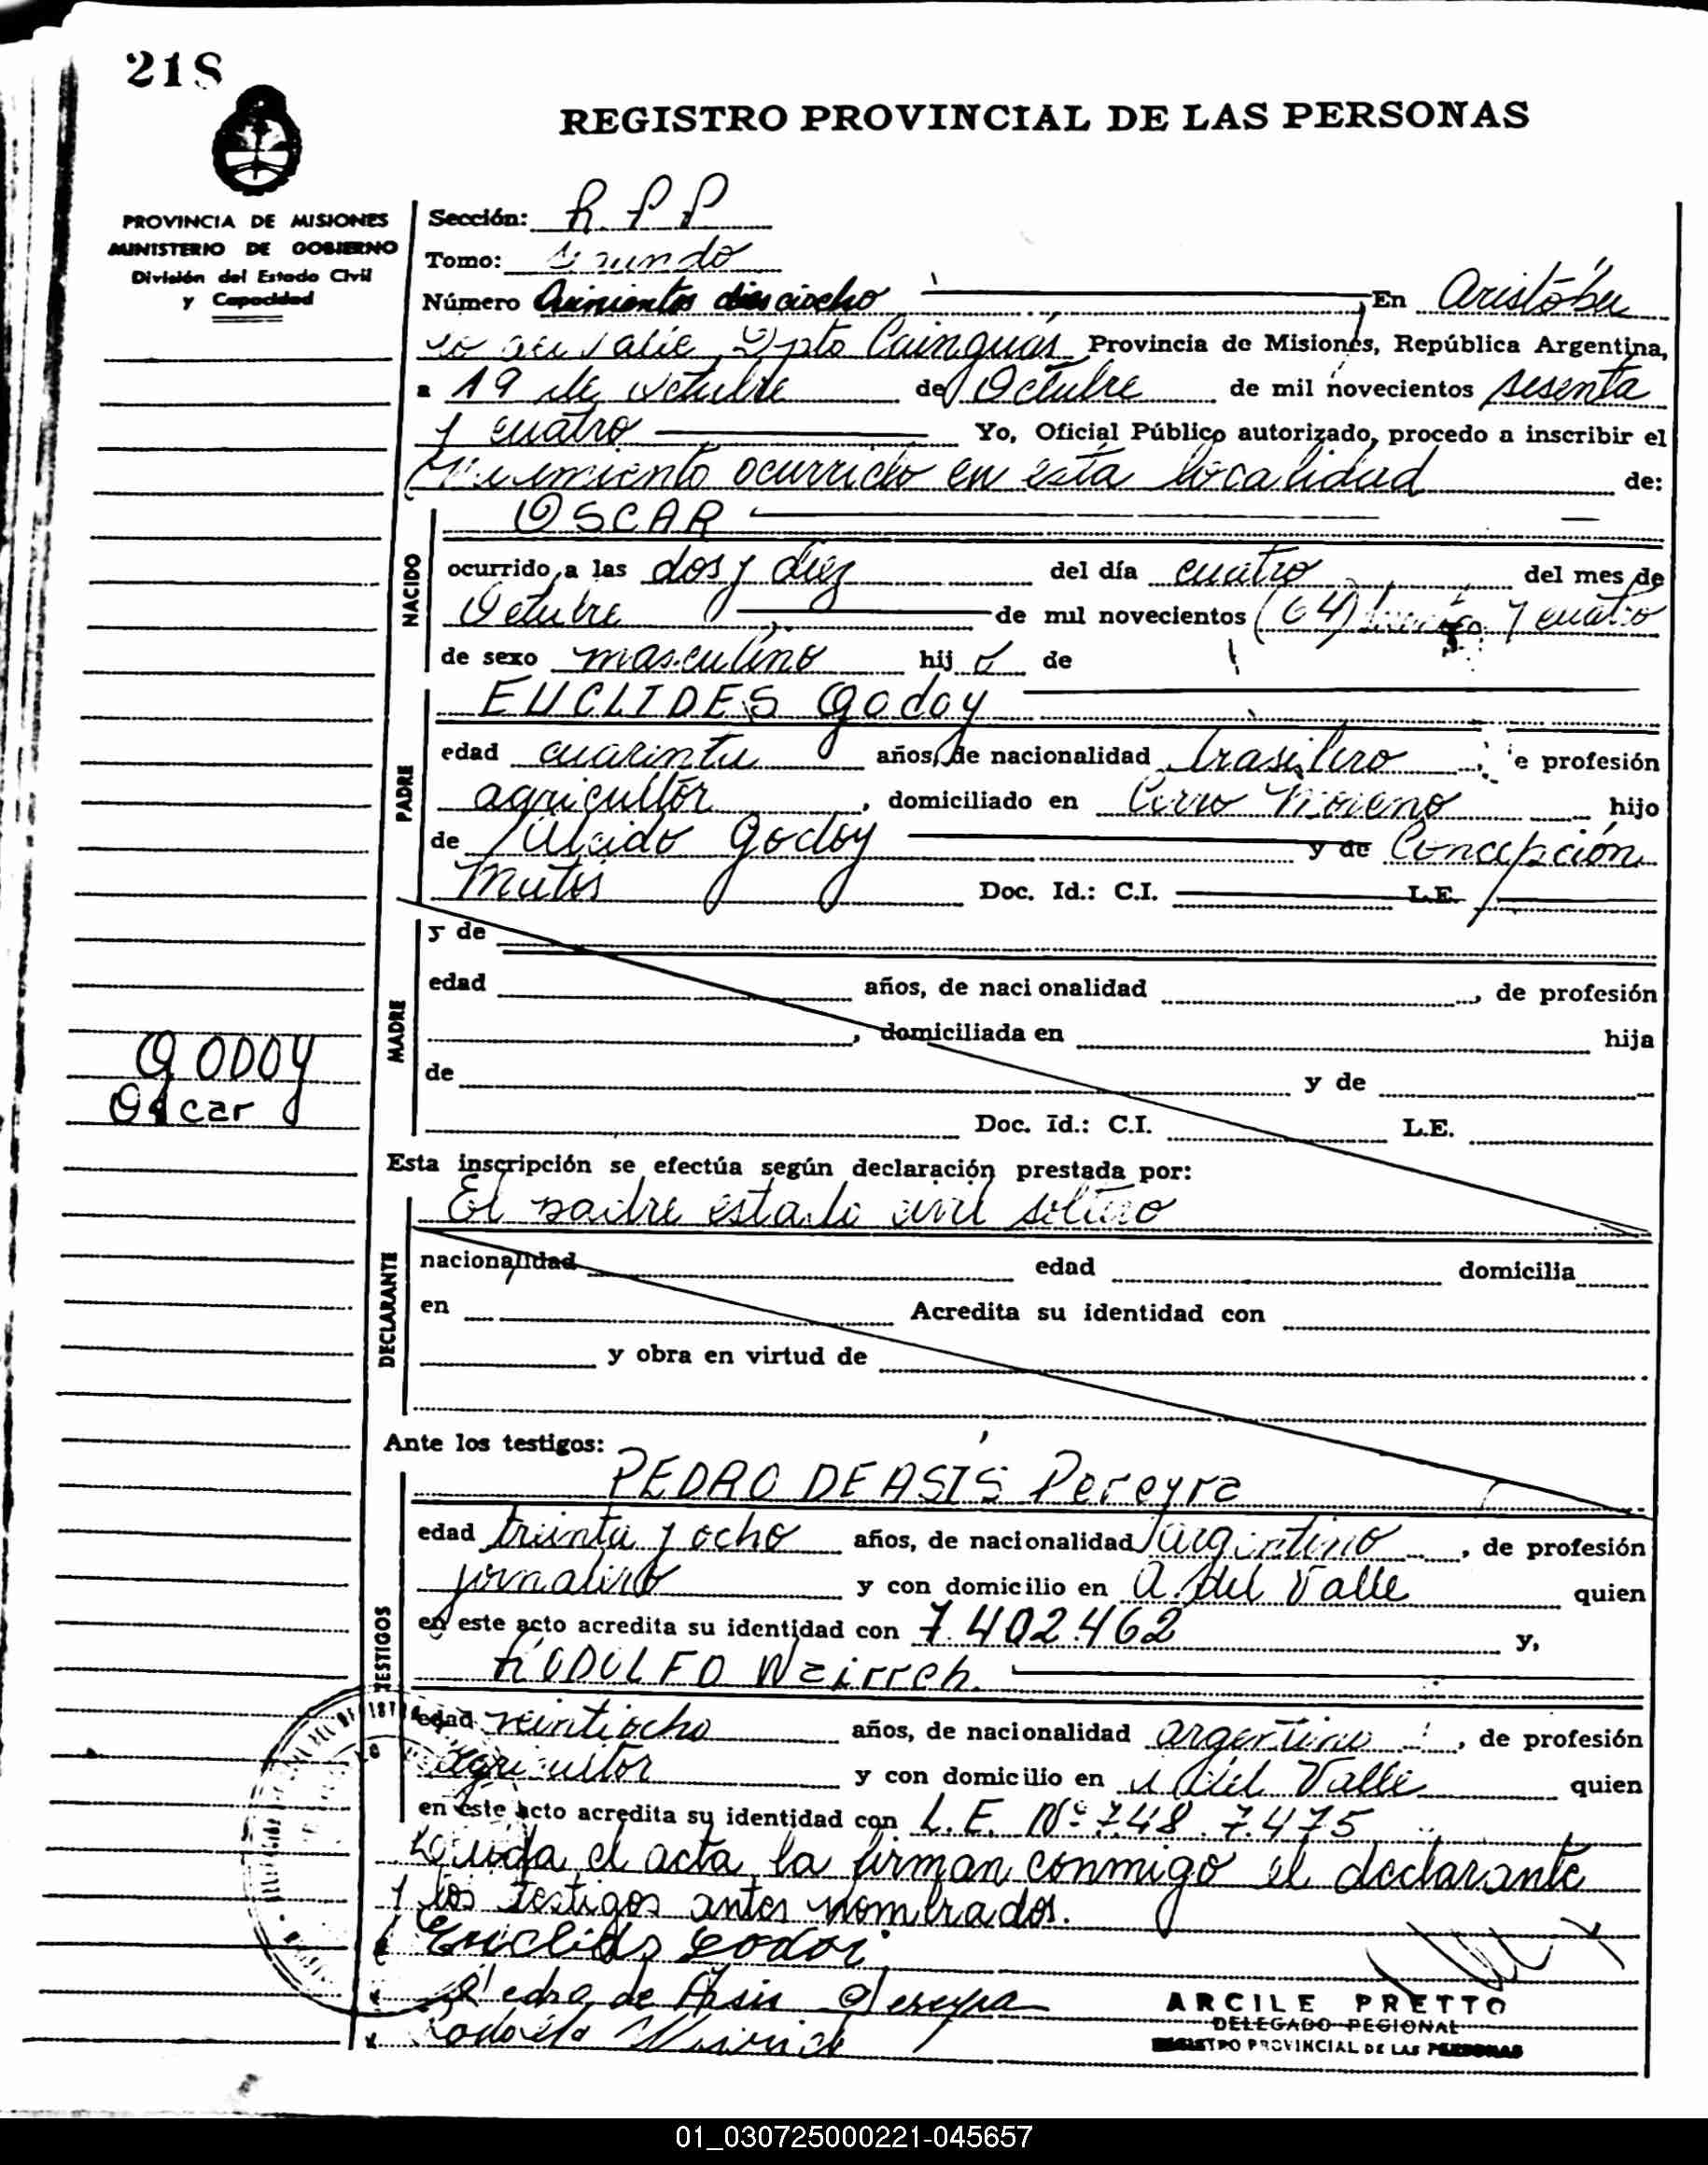 218
REGISTRO PROVINCIAL DE LAS PERSONAS
PROVINCIA DE MISIONES
MINISTERIO DE GOBIERNO
División del Estado Civil
y Capacidad
Sección: R P P
Tomo:
Número Quinientos dieciocho En Aristóbu
lo del Valle Dpto Cainguás Provincia de Misiones, República Argentina,
a 19 de octubre de Octubre de mil novecientos sesenta
y cuatro Yo, Oficial Público autorizado, procedo a inscribir el
Nacimiento ocurrido en esta localidad de:
NACIDO
OSCAR
ocurrido a las dos y diez del día cuatro del mes de
Octubre de mil novecientos (64) sesenta y cuatro
de sexo masculino hij o de
PADRE
EUCLIDES Godoy
edad cuarenta años, de nacionalidad brasilero, de profesión
agricultor, domiciliado en Cerro Moreno hijo
de Alcido Godoy y de Concepción
Doc. Id.: C.I. L.E.
MADRE
y de
edad años, de nacionalidad, de profesión
, domiciliada en hija
de y de
Doc. Id.: C.I. L.E.
GODOY
Oscar
Esta inscripción se efectúa según declaración prestada por:
El padre estado civil soltero
DECLARANTE
nacionalidad edad domicilia
en Acredita su identidad con
y obra en virtud de
Ante los testigos:
TESTIGOS
PEDRO DE ASIS Pereyra
edad treinta y ocho años, de nacionalidad argentino, de profesión
jornalero y con domicilio en A. del Valle quien
en este acto acredita su identidad con 7.402.462 y,
RODOLFO Weirrch.
edad veintiocho años, de nacionalidad argentino, de profesión
agricultor y con domicilio en A. del Valle quien
en este acto acredita su identidad con L.E. Nº 748.7.475
Leída el acta la firman conmigo el declarante
y los testigos antes nombrados.
Euclides Godoi
Pedro de Asis Pereyra
ARCILE PRETTO
DELEGADO REGIONAL
REGISTRO PROVINCIAL DE LAS PERSONAS
01_030725000221-045657